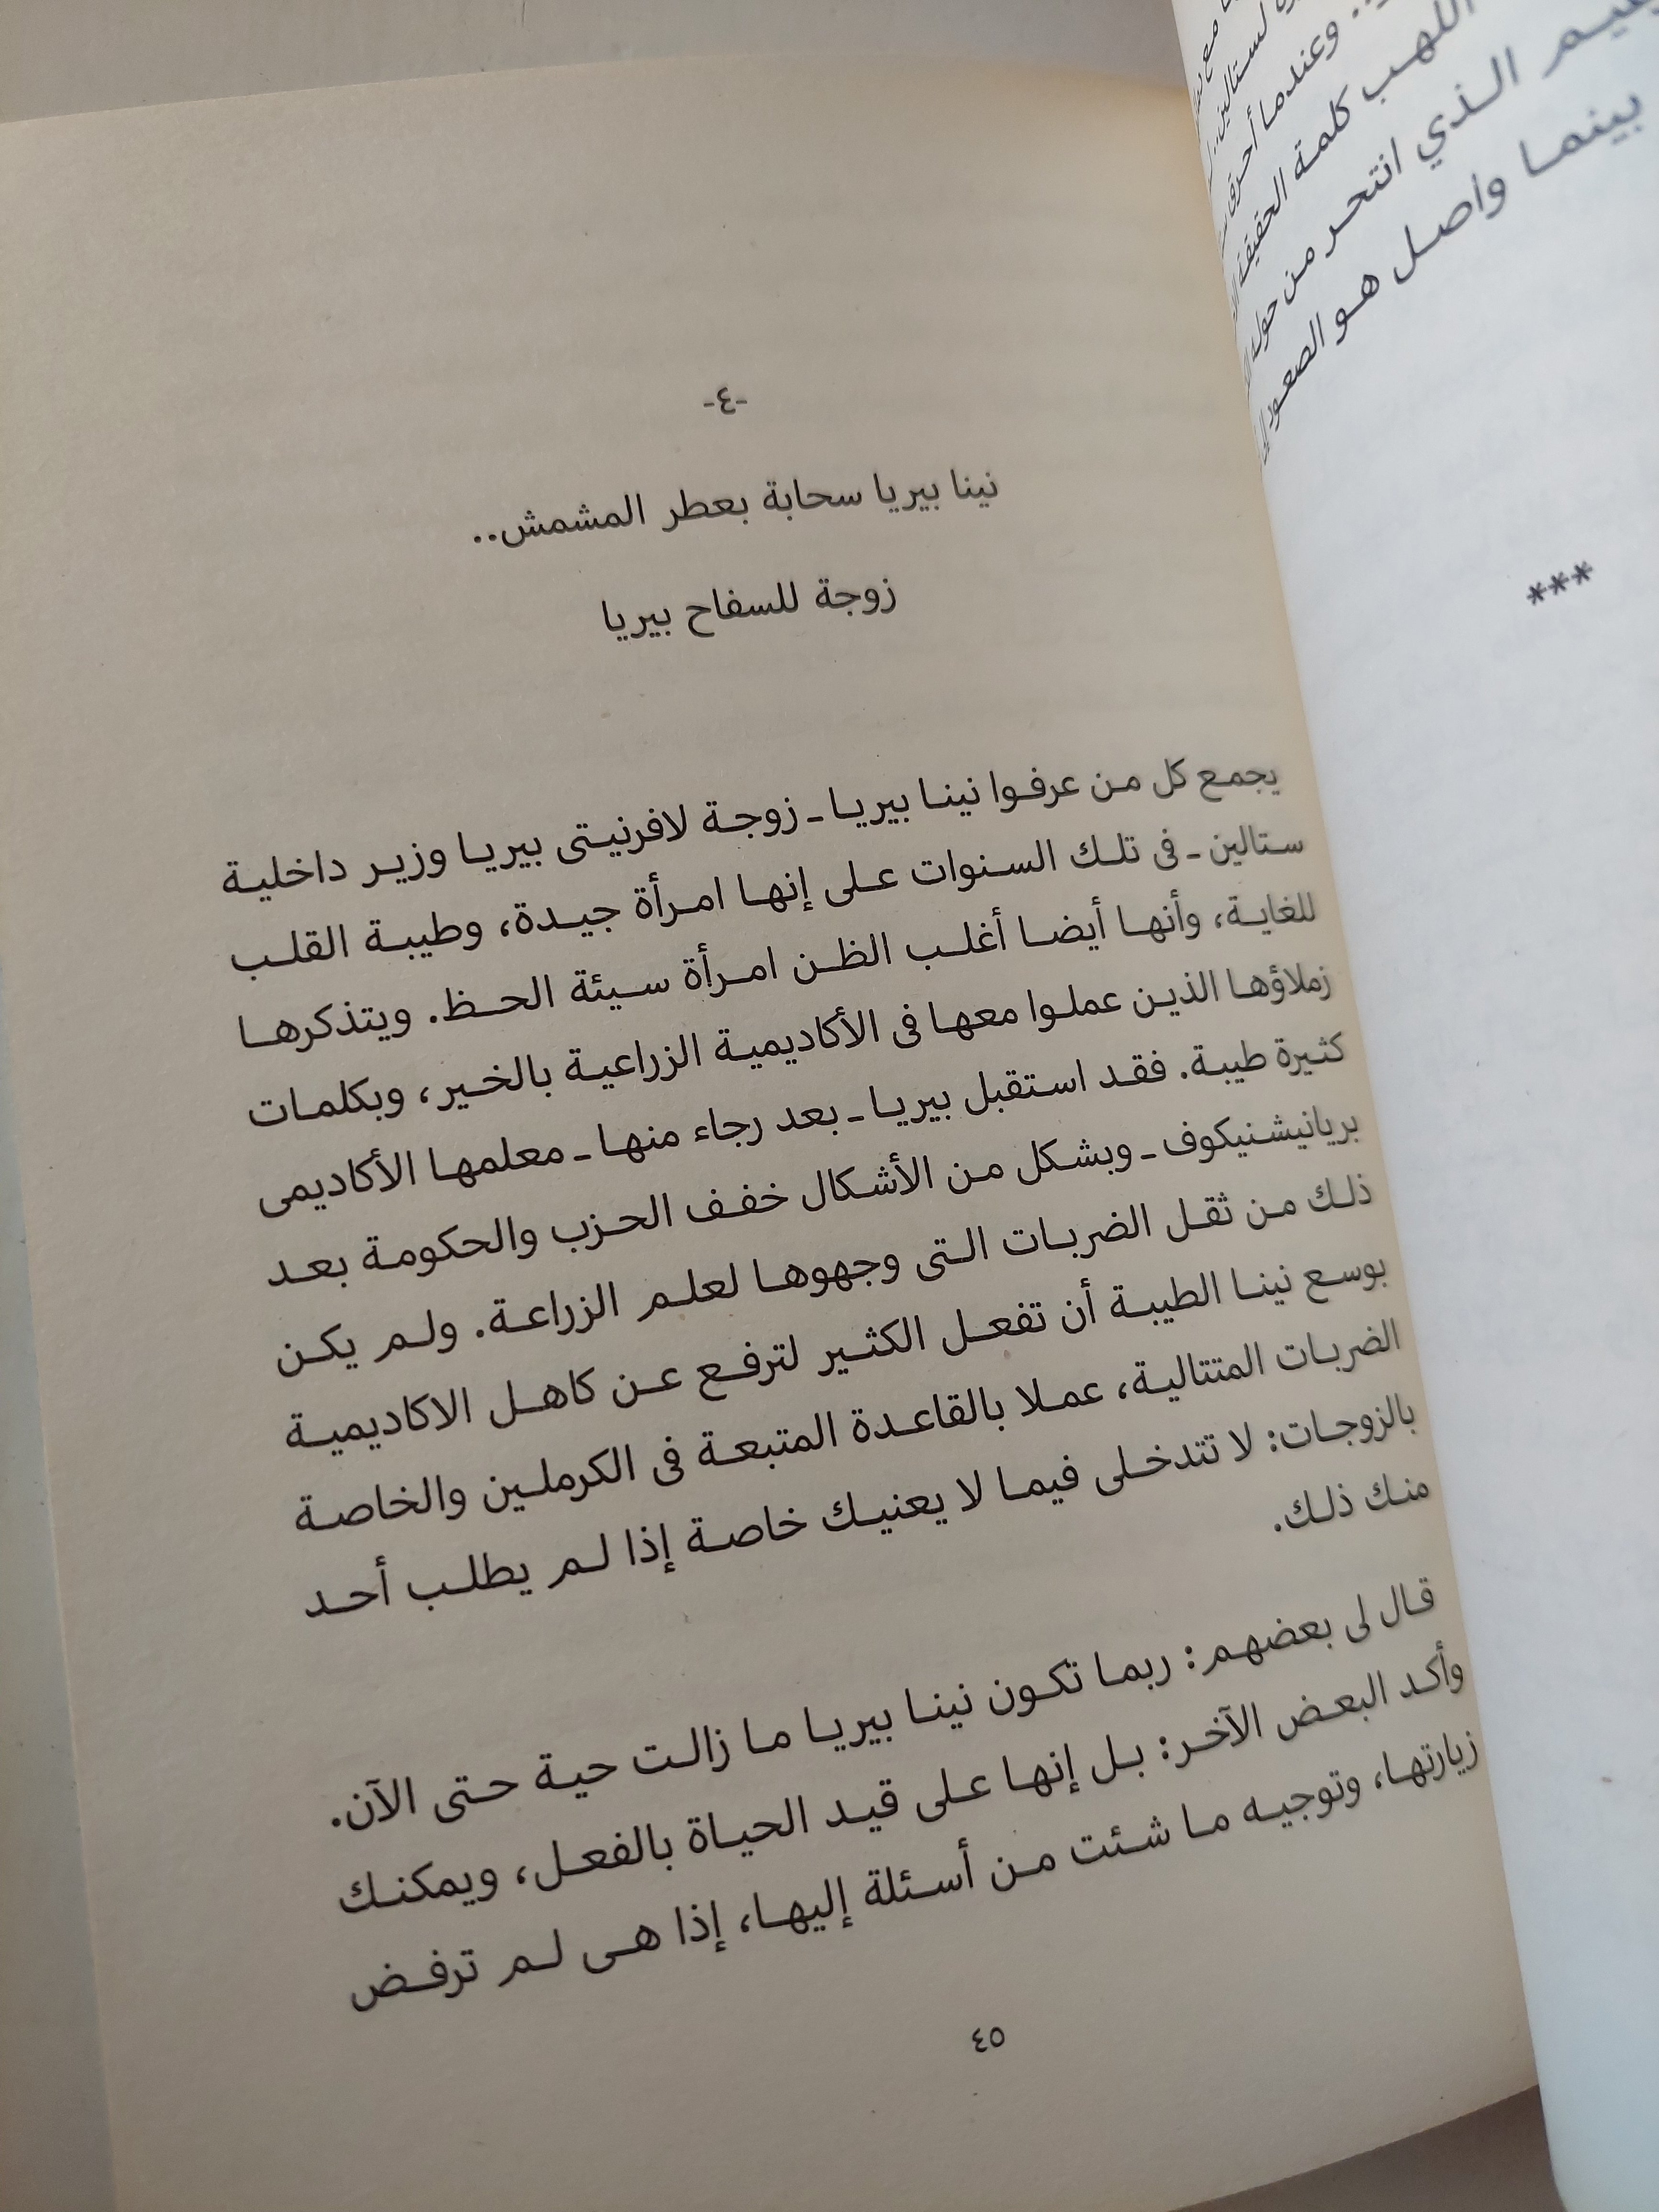 وعندما أحرق
اللهب كلمة الحقيقة
الذي انتحر من حوله
بينما واصل هو الصعود
***
-٤-
نينا بيريا سحابة بعطر المشمش..
زوجة للسفاح بيريا
يجمع كل من عرفوا نينا بيريا ـ زوجة لافرنيتى بيريا وزير داخلية
ستالين ـ فى تلك السنوات على إنها امرأة جيدة، وطيبة القلب
للغاية، وأنها أيضا أغلب الظن امرأة سيئة الحظ. ويتذكرها
زملاؤها الذين عملوا معها فى الأكاديمية الزراعية بالخير، وبكلمات
كثيرة طيبة. فقد استقبل بيريا ـ بعد رجاء منها ـ معلمها الأكاديمى
بريانيشنيكوف ـ وبشكل من الأشكال خفف الحزب والحكومة بعد
ذلك من ثقل الضربات التى وجهوها لعلم الزراعة. ولم يكن
بوسع نينا الطيبة أن تفعل الكثير لترفع عن كاهل الاكاديمية
الضربات المتتالية، عملا بالقاعدة المتبعة فى الكرملين والخاصة
بالزوجات: لا تتدخلى فيما لا يعنيك خاصة إذا لم يطلب أحد
منك ذلك.
قال لى بعضهم: ربما تكون نينا بيريا ما زالت حية حتى الآن.
وأكد البعض الآخر: بل إنها على قيد الحياة بالفعل، ويمكنك
زيارتها، وتوجيه ما شئت من أسئلة إليها، إذا هى لم ترفض
٤٥